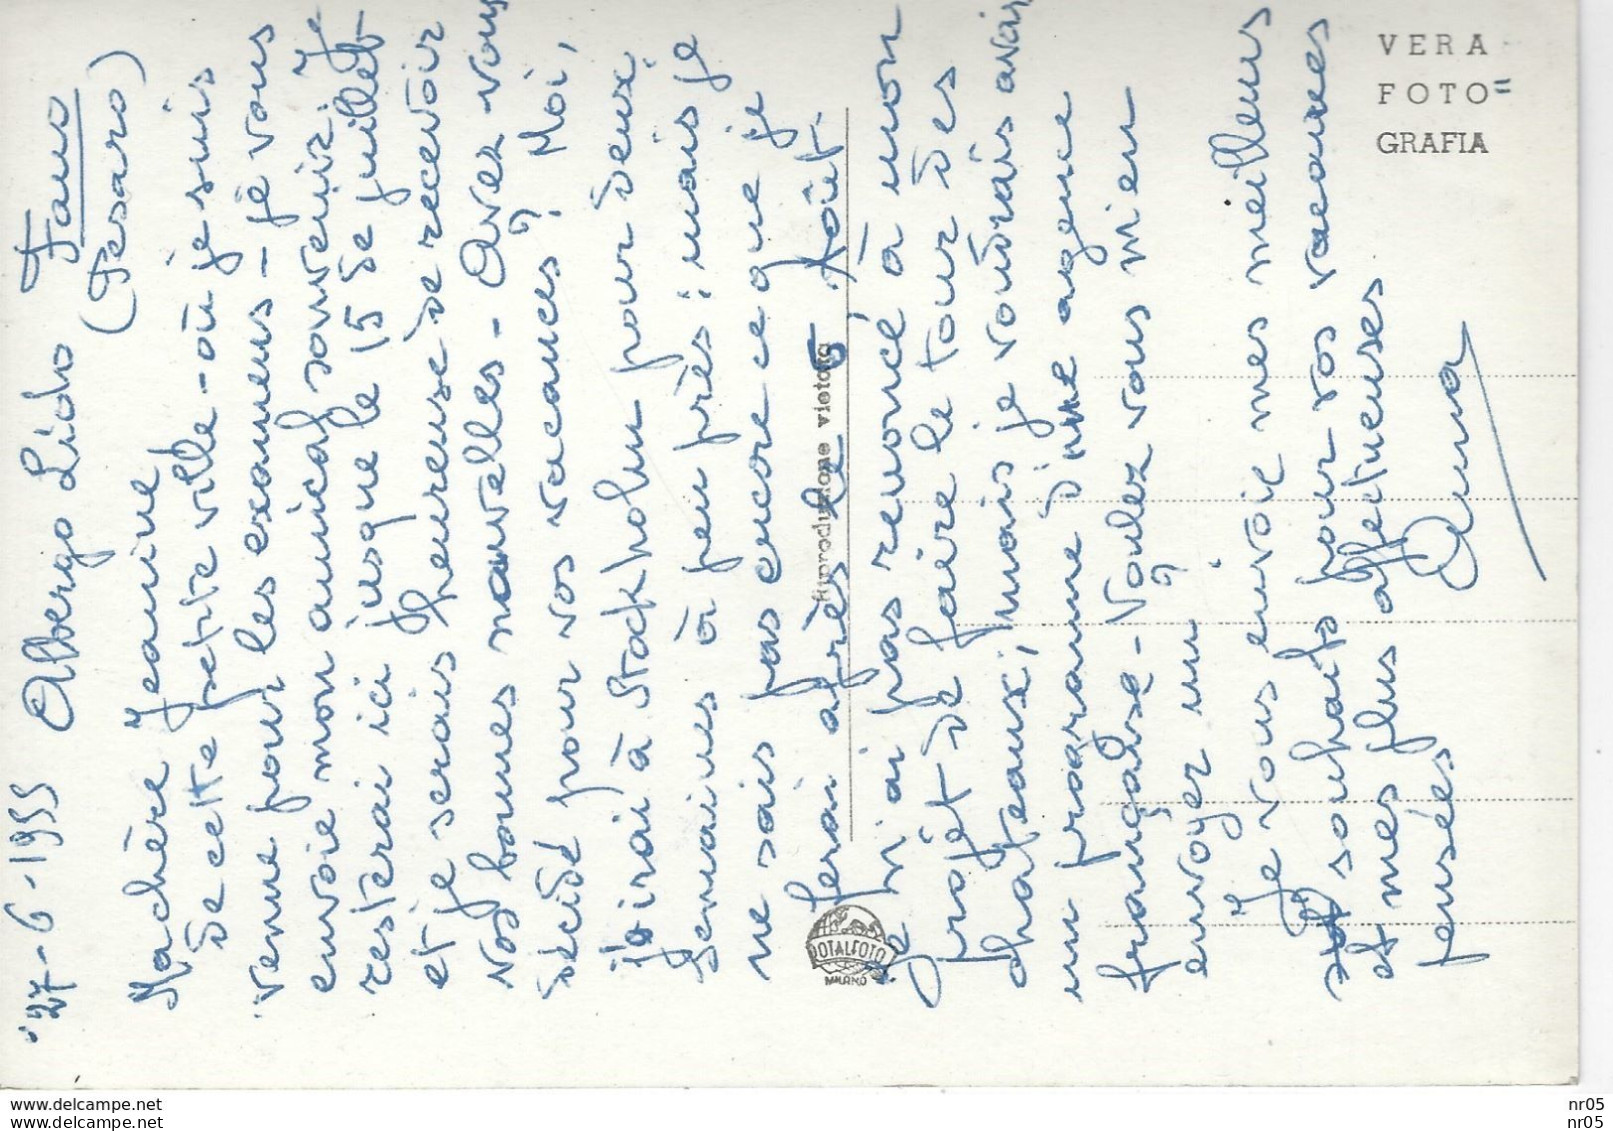 27-6-1955 Albergo Lido Fano
(Pesaro)
Ma chère Jeanine
De cette petite ville - où je suis
venue pour les examens - je vous
envoie mon amical souvenir. Je
resterai ici jusque le 15 de juillet
et je serais heureuse de recevoir
vos bonnes nouvelles - Avez vous
décidé pour vos vacances? Moi,
j'irai à Stockholm pour deux
semaines à peu près; mais je
ne sais pas encore ce que je
ferai après le 5 Août.
Je n'ai pas renoncé à mon
projet de faire le tour des
chateaux; mais je voudrais avoir
un programme d'une agence
française - Voulez vous m'en
envoyer un?
Je vous envoie mes meilleurs
souhaits pour vos vacances
et mes plus affectueuses
pensées
Anna
VERA
FOTO=
GRAFIA
Riproduzione vietata
ROTALFOTO
MILANO
www.delcampe.net
www.delcampe.net
nr05
nr05